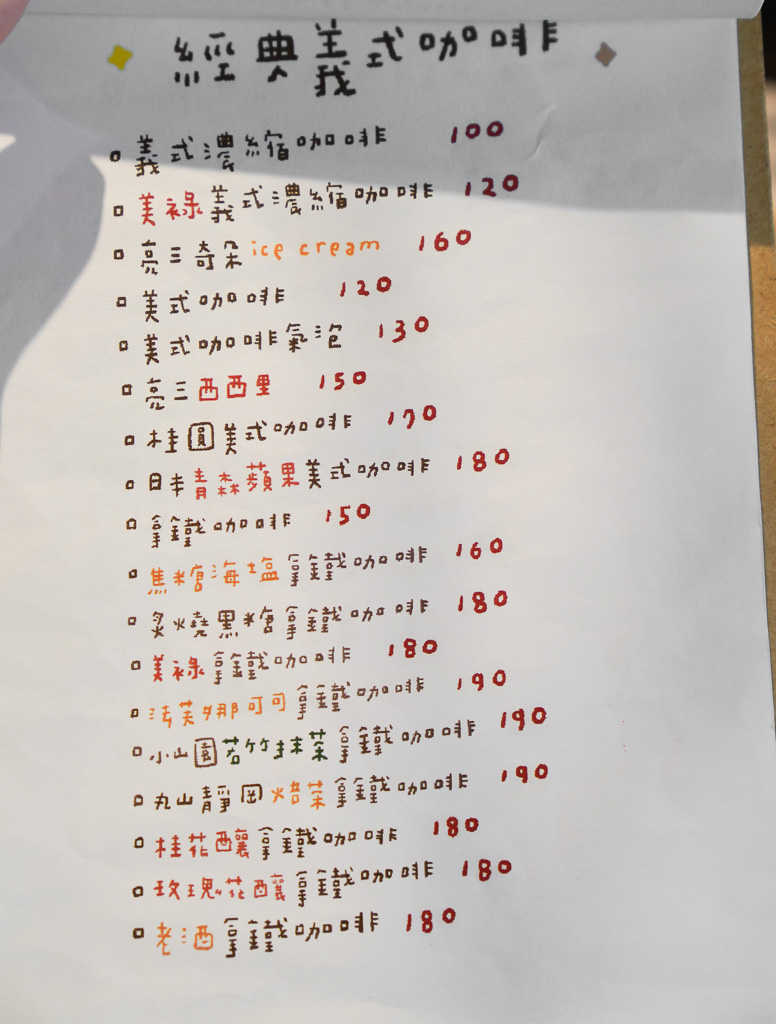 經典義式咖啡
義式濃縮咖啡 100
美祿義式濃縮咖啡 120
亮三奇朵ice cream 160
美式咖啡 120
美式咖啡氣泡 130
亮三西西里 150
桂圓美式咖啡 170
日本青森蘋果美式咖啡 180
拿鐵咖啡 150
焦糖海塩拿鐵咖啡 160
炙燒黑糖拿鐵咖啡 180
美祿拿鐵咖啡 180
法芙娜可可拿鐵咖啡 190
小山園若竹抹茶拿鐵咖啡 190
丸山靜岡焙茶拿鐵咖啡 190
桂花釀拿鐵咖啡 180
玫瑰花釀拿鐵咖啡 180
老酒拿鐵咖啡 180